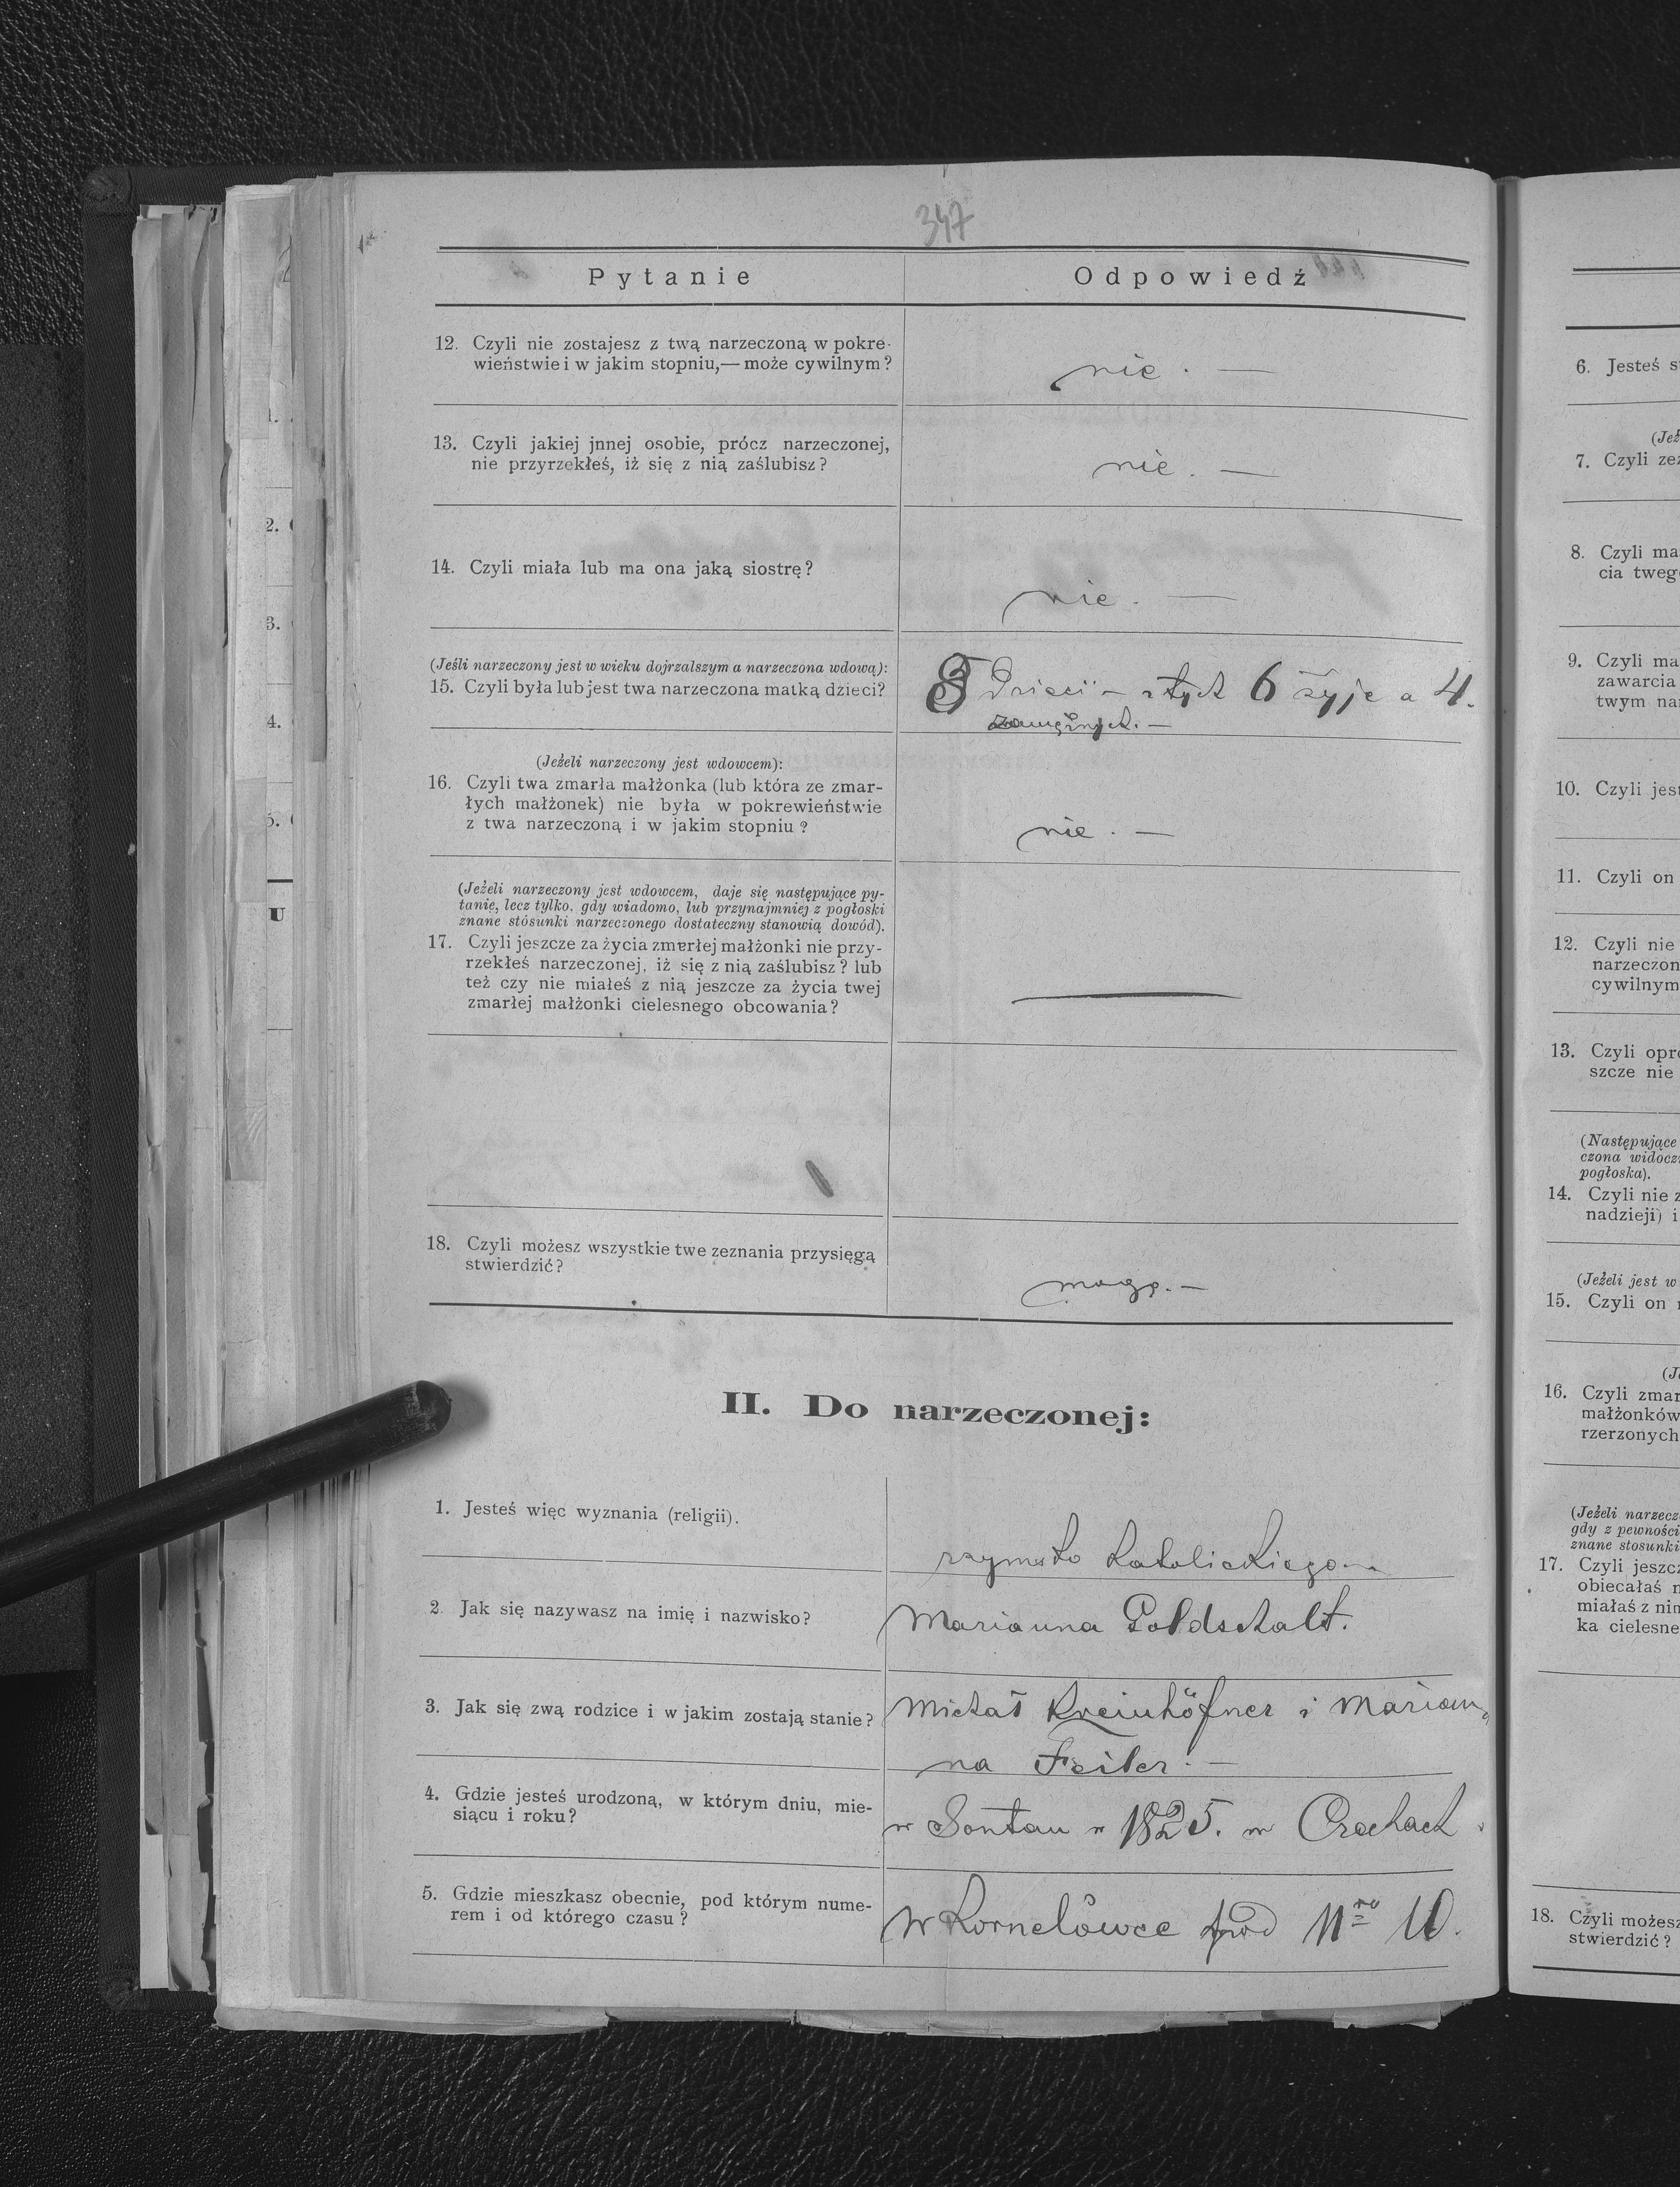 347
Pytanie
Odpowiedź
12. Czyli nie zostajesz z twą narzeczoną w pokre-
wieństwie i w jakim stopniu,— może cywilnym?
nie. —
13. Czyli jakiej jnnej osobie, prócz narzeczonej,
nie przyrzekłeś, iż się z nią zaślubisz?
nie. —
14. Czyli miała lub ma ona jaką siostrę?
nie. —
(Jeśli narzeczony jest w wieku dojrzalszym a narzeczona wdową):
15. Czyli była lub jest twa narzeczona matką dzieci?
Dzieci — z tych 6 żyje a 4.
zamężnych. —
(Jeżeli narzeczony jest wdowcem):
16. Czyli twa zmarła małżonka (lub która ze zmar-
łych małżonek) nie była w pokrewieństwie
z twa narzeczoną i w jakim stopniu?
nie. —
(Jeżeli narzeczony jest wdowcem, daje się następujące py-
tanie, lecz tylko, gdy wiadomo, lub przynajmniej z pogłoski
znane stósunki narzeczonego dostateczny stanowią dowód).
17. Czyli jeszcze za życia zmarłej małżonki nie przy-
rzekłeś narzeczonej, iż się z nią zaślubisz? lub
też czy nie miałeś z nią jeszcze za życia twej
zmarłej małżonki cielesnego obcowania?
18. Czyli możesz wszystkie twe zeznania przysięgą
stwierdzić?
mogę. —
II. Do narzeczonej:
1. Jesteś więc wyznania (religii).
rzymsko katolickiego —
2. Jak się nazywasz na imię i nazwisko?
Marianna Goldschalt.
3. Jak się zwą rodzice i w jakim zostają stanie?
Michał Kreinhöfner i Marian-
na Feiler. —
4. Gdzie jesteś urodzoną, w którym dniu, mie-
siącu i roku?
w Sontau w 1825. w Czechach.
5. Gdzie mieszkasz obecnie, pod którym nume-
rem i od którego czasu?
w Kornelówce pod Nro 10.
6. Jesteś s
(Jeż
7. Czyli zez
8. Czyli ma
cia tweg
9. Czyli ma
zawarcia
twym na
10. Czyli jest
11. Czyli on
12. Czyli nie
narzeczon
cywilnym
13. Czyli opró
szcze nie
(Następujące
czona widocz
pogłoska).
14. Czyli nie z
nadzieji) i
(Jeżeli jest w
15. Czyli on
(Je
16. Czyli zmar
małżonków
rzerzonych
(Jeżeli narzecz
gdy z pewności
znane stosunki
17. Czyli jeszcz
obiecałaś n
miałaś z nin
ka cielesne
18. Czyli możesz
stwierdzić?